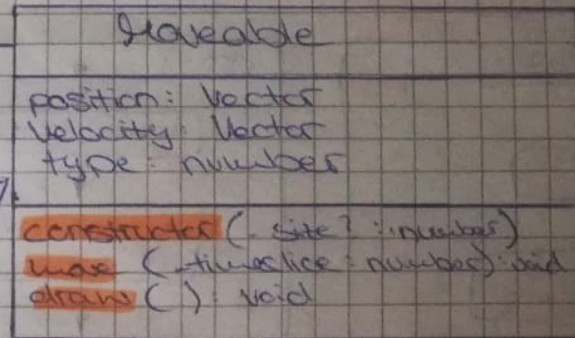 Moveable
position: Vector
velocity: Vector
type: number
constructor (_site? : number)
move (_timeslice : number): void
draw ( ): void